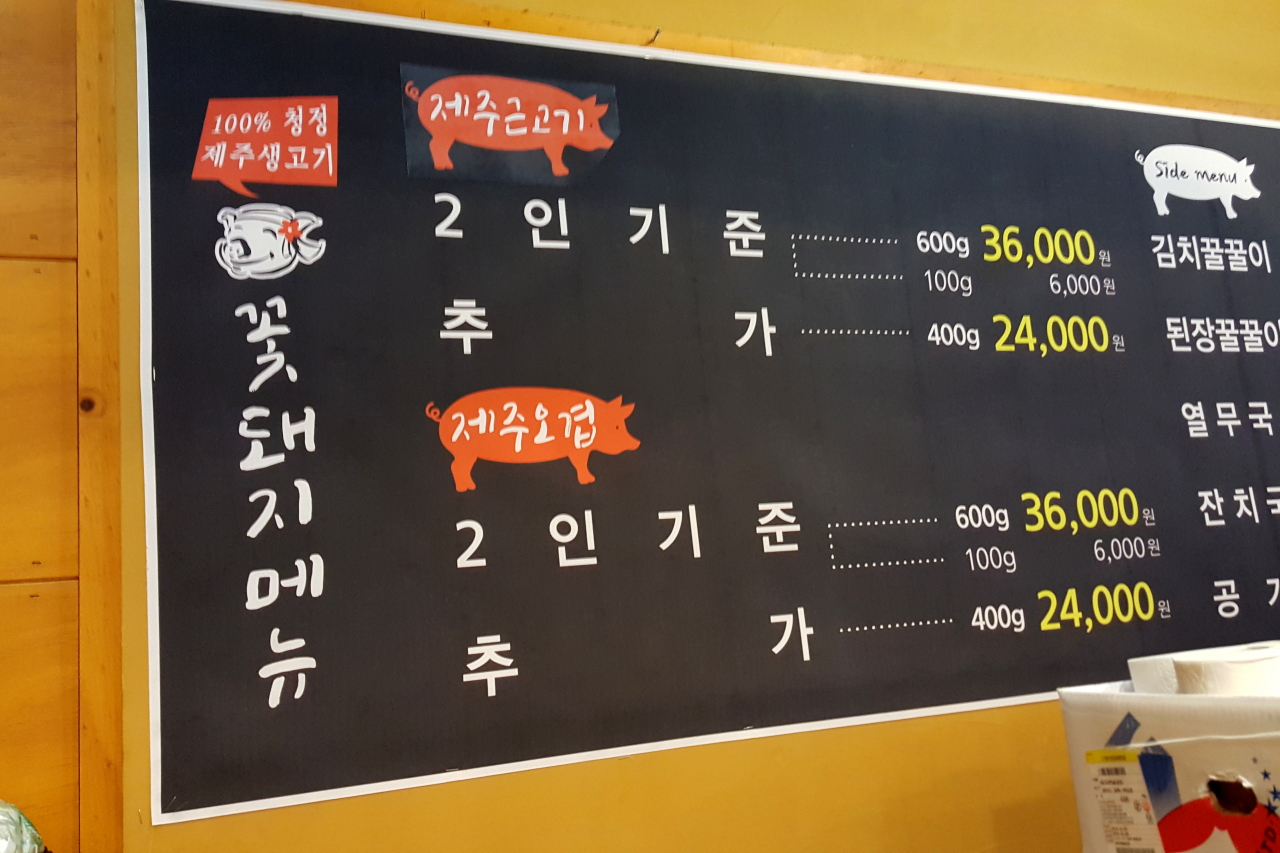 100% 청정
제주생고기
꽃돼지메뉴
제주근고기
2인기준 600g 36,000원
100g 6,000원
추가 400g 24,000원
제주오겹
2인기준 600g 36,000원
100g 6,000원
추가 400g 24,000원
Side menu
김치꿀꿀이
된장꿀꿀이
열무국
잔치국
공